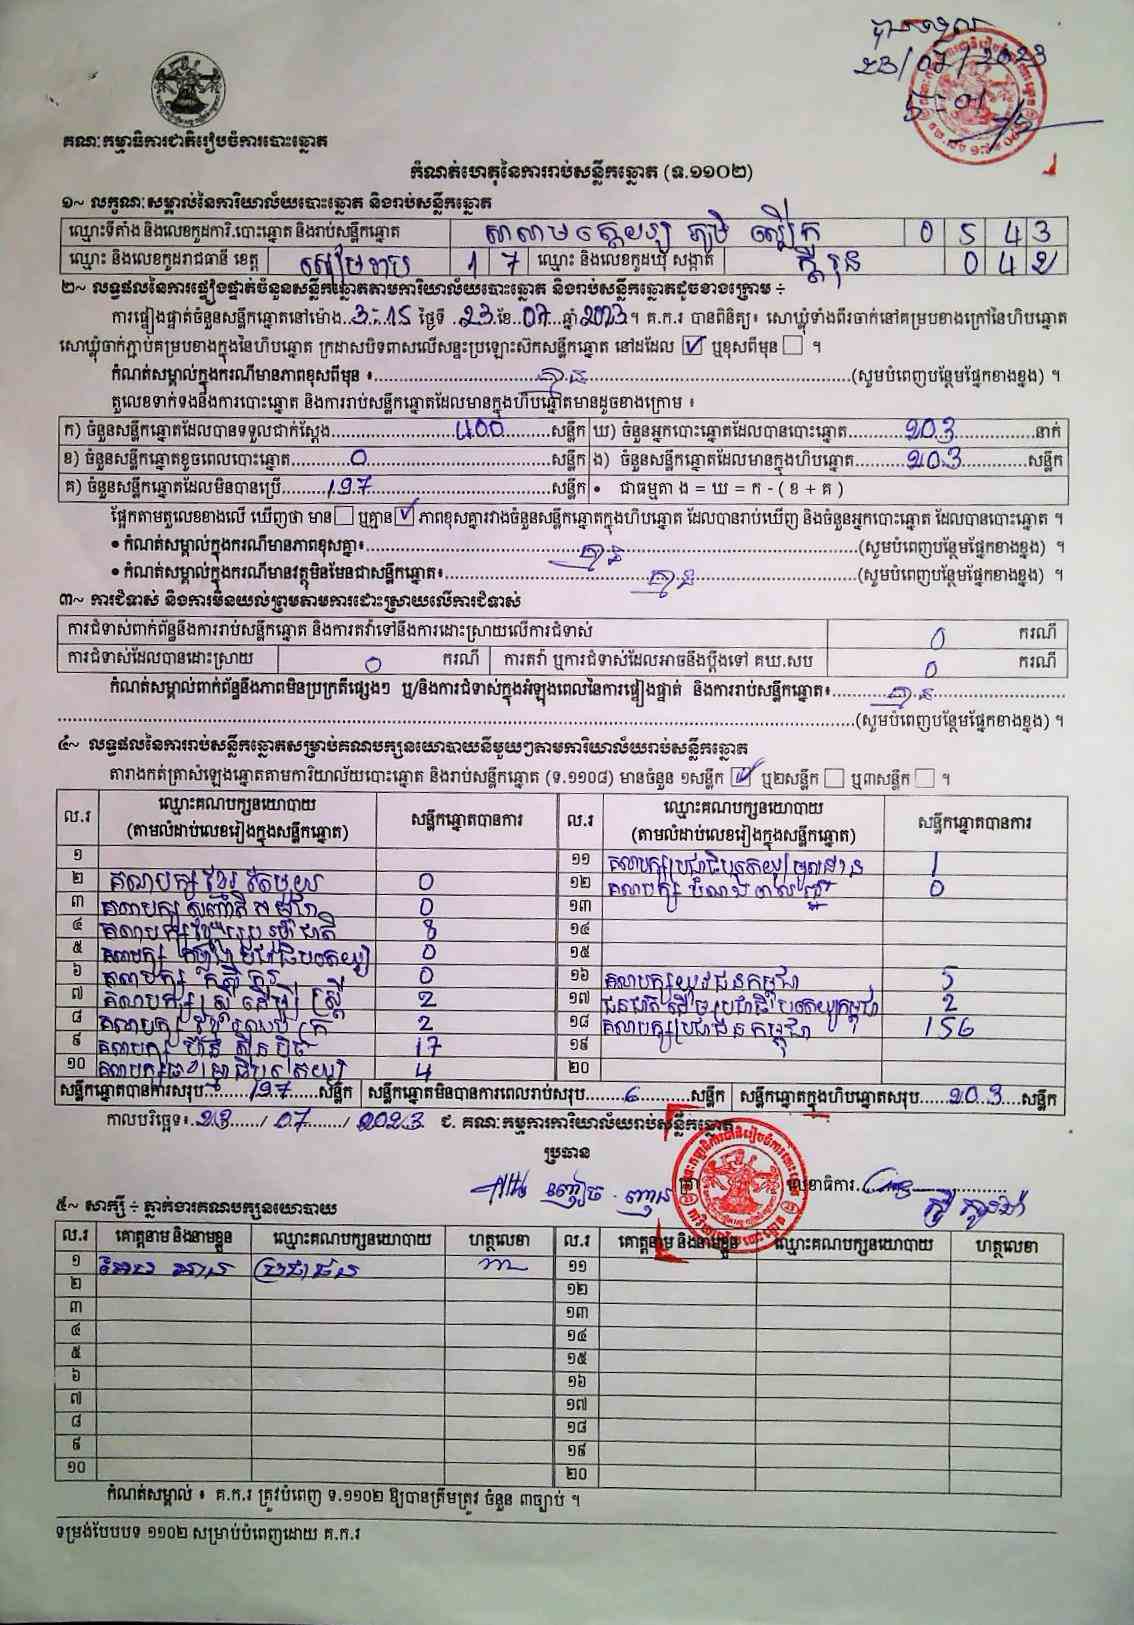 បានទទួល
23/07/2023
គណៈកម្មាធិការជាតិរៀបចំការបោះឆ្នោត
កំណត់ហេតុនៃការរាប់សន្លឹកឆ្នោត (ទ.១១០២)
១~ លក្ខណៈសម្គាល់នៃការិយាល័យបោះឆ្នោត និងរាប់សន្លឹកឆ្នោត
ឈ្មោះទីតាំង និងលេខកូដការិ.បោះឆ្នោត និងរាប់សន្លឹកឆ្នោត 0 5 4 3
ឈ្មោះ និងលេខកូដរាជធានី ខេត្ត សៀមរាប 1 7 ឈ្មោះ និងលេខកូដឃុំ សង្កាត់ 0 4 2
២~ លទ្ធផលនៃការផ្ទៀងផ្ទាត់ចំនួនសន្លឹកឆ្នោតតាមការិយាល័យបោះឆ្នោត និងរាប់សន្លឹកឆ្នោតដូចខាងក្រោម ÷
ការផ្ទៀងផ្ទាត់ចំនួនសន្លឹកឆ្នោតនៅម៉ោង 3:15 ថ្ងៃទី 23 ខែ 07 ឆ្នាំ 2023។ គ.ក.រ បានពិនិត្យ៖ សោឃ្លុំទាំងពីរចាក់នៅគម្របខាងក្រៅនៃហិបឆ្នោត
សោឃ្លុំចាក់ភ្ជាប់គម្របខាងក្នុងនៃហិបឆ្នោត ក្រដាសបិទពាសលើសន្ទះប្រឡោះស៊កសន្លឹកឆ្នោត នៅដដែល ☑ ឬខុសពីមុន ☐ ។
កំណត់សម្គាល់ក្នុងករណីមានភាពខុសពីមុន ៖ គ្មាន (សូមបំពេញបន្ថែមផ្នែកខាងខ្នង) ។
តួលេខទាក់ទងនឹងការបោះឆ្នោត និងការរាប់សន្លឹកឆ្នោតដែលមានក្នុងហិបឆ្នោតមានដូចខាងក្រោម ៖
ក) ចំនួនសន្លឹកឆ្នោតដែលបានទទួលជាក់ស្តែង 400 សន្លឹក ឃ) ចំនួនអ្នកបោះឆ្នោតដែលបានបោះឆ្នោត 203 នាក់
ខ) ចំនួនសន្លឹកឆ្នោតខូចពេលបោះឆ្នោត 0 សន្លឹក ង) ចំនួនសន្លឹកឆ្នោតដែលមានក្នុងហិបឆ្នោត 203 សន្លឹក
គ) ចំនួនសន្លឹកឆ្នោតដែលមិនបានប្រើ 197 សន្លឹក • ជាធម្មតា ង = ឃ = ក - ( ខ + គ )
ផ្អែកតាមតួលេខខាងលើ ឃើញថា មាន ☐ ឬគ្មាន ☑ ភាពខុសគ្នារវាងចំនួនសន្លឹកឆ្នោតក្នុងហិបឆ្នោត ដែលបានរាប់ឃើញ និងចំនួនអ្នកបោះឆ្នោត ដែលបានបោះឆ្នោត ។
• កំណត់សម្គាល់ក្នុងករណីមានភាពខុសគ្នា៖ គ្មាន (សូមបំពេញបន្ថែមផ្នែកខាងខ្នង) ។
• កំណត់សម្គាល់ក្នុងករណីមានវត្ថុមិនមែនជាសន្លឹកឆ្នោត៖ គ្មាន (សូមបំពេញបន្ថែមផ្នែកខាងខ្នង) ។
៣~ ការជំទាស់ និងការមិនយល់ព្រមតាមការដោះស្រាយលើការជំទាស់
ការជំទាស់ពាក់ព័ន្ធនឹងការរាប់សន្លឹកឆ្នោត និងការតវ៉ាទៅនឹងការដោះស្រាយលើការជំទាស់ 0 ករណី
ការជំទាស់ដែលបានដោះស្រាយ 0 ករណី ការតវ៉ា ឬការជំទាស់ដែលអាចនឹងប្តឹងទៅ គឃ.សប 0 ករណី
កំណត់សម្គាល់ពាក់ព័ន្ធនឹងភាពមិនប្រក្រតីផ្សេងៗ ឬ/និងការជំទាស់ក្នុងអំឡុងពេលនៃការផ្ទៀងផ្ទាត់ និងការរាប់សន្លឹកឆ្នោត៖ គ្មាន
(សូមបំពេញបន្ថែមផ្នែកខាងខ្នង) ។
៤~ លទ្ធផលនៃការរាប់សន្លឹកឆ្នោតសម្រាប់គណបក្សនយោបាយនីមួយៗតាមការិយាល័យរាប់សន្លឹកឆ្នោត
តារាងកត់ត្រាសំឡេងឆ្នោតតាមការិយាល័យបោះឆ្នោត និងរាប់សន្លឹកឆ្នោត (ទ.១១០៨) មានចំនួន ១សន្លឹក ☑ ឬ២សន្លឹក ☐ ឬ៣សន្លឹក ☐ ។
ល.រ ឈ្មោះគណបក្សនយោបាយ (តាមលំដាប់លេខរៀងក្នុងសន្លឹកឆ្នោត) សន្លឹកឆ្នោតបានការ ល.រ ឈ្មោះគណបក្សនយោបាយ (តាមលំដាប់លេខរៀងក្នុងសន្លឹកឆ្នោត) សន្លឹកឆ្នោតបានការ
១ ១១ គណបក្សប្រជាធិបតេយ្យមូលដ្ឋាន 1
២ គណបក្សខ្មែរតែមួយ 0 ១២ គណបក្ស 0
៣ គណបក្ស 0 ១៣
៤ គណបក្សខ្មែររួបរួមជាតិ 8 ១៤
៥ គណបក្ស ប្រជាធិបតេយ្យ 0 ១៥
៦ គណបក្ស 0 ១៦ គណបក្សយុវជនកម្ពុជា 5
៧ គណបក្សស្ត្រីដើម្បីស្ត្រី 2 ១៧ ជនជាតិដើមប្រជាធិបតេយ្យកម្ពុជា 2
៨ គណបក្ស 2 ១៨ គណបក្សប្រជាជនកម្ពុជា 156
៩ គណបក្ស ហ្វ៊ុនស៊ិនប៉ិច 17 ១៩
១០ គណបក្ស 4 ២០
សន្លឹកឆ្នោតបានការសរុប 197 សន្លឹក សន្លឹកឆ្នោតមិនបានការពេលរាប់សរុប 6 សន្លឹក សន្លឹកឆ្នោតក្នុងហិបឆ្នោតសរុប 203 សន្លឹក
កាលបរិច្ឆេទ៖ 23 / 07 / 2023 ជ. គណៈកម្មការការិយាល័យរាប់សន្លឹកឆ្នោត
ប្រធាន
លេខាធិការ
៥~ សាក្សី ÷ ភ្នាក់ងារគណបក្សនយោបាយ
ល.រ គោត្តនាម និងនាមខ្លួន ឈ្មោះគណបក្សនយោបាយ ហត្ថលេខា ល.រ គោត្តនាម និងនាមខ្លួន ឈ្មោះគណបក្សនយោបាយ ហត្ថលេខា
១ ប្រជាជន ១១
២ ១២
៣ ១៣
៤ ១៤
៥ ១៥
៦ ១៦
៧ ១៧
៨ ១៨
៩ ១៩
១០ ២០
កំណត់សម្គាល់ ៖ គ.ក.រ ត្រូវបំពេញ ទ.១១០២ ឱ្យបានត្រឹមត្រូវ ចំនួន ៣ច្បាប់ ។
ទម្រង់បែបបទ ១១០២ សម្រាប់បំពេញដោយ គ.ក.រ